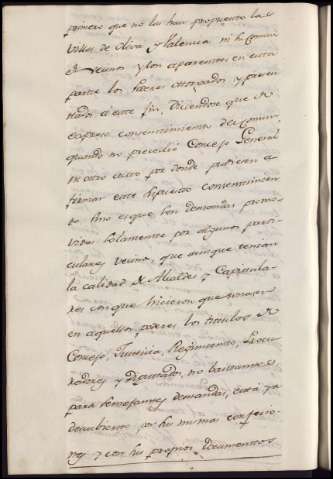 primero que no las han propuesto las
Villas de Oliva y Valencia ni el Comun
de vecinos y son aparentes en esta
parte los Poderes otorgados y presen
tados a este fin, diciendose que de
expreso consentimiento del comun,
quando no precedió Concejo General
ni otro acto por donde pudiera a
firmar este supuesto consentimien
to sino es que son demandas promo
vidas solamente por algunos parti
culares vecinos, que aunque tengan
la calidad de Alcaldes y Capitula
res con que hicieron que sonase
en aquellos poderes los titulos de
Concejo, Justicia, Regimiento, Procu
radores y Diputado, no bastantes
para semejantes demandas, está ya
descubierto por las mismas confesio
nes y con los propios documentos